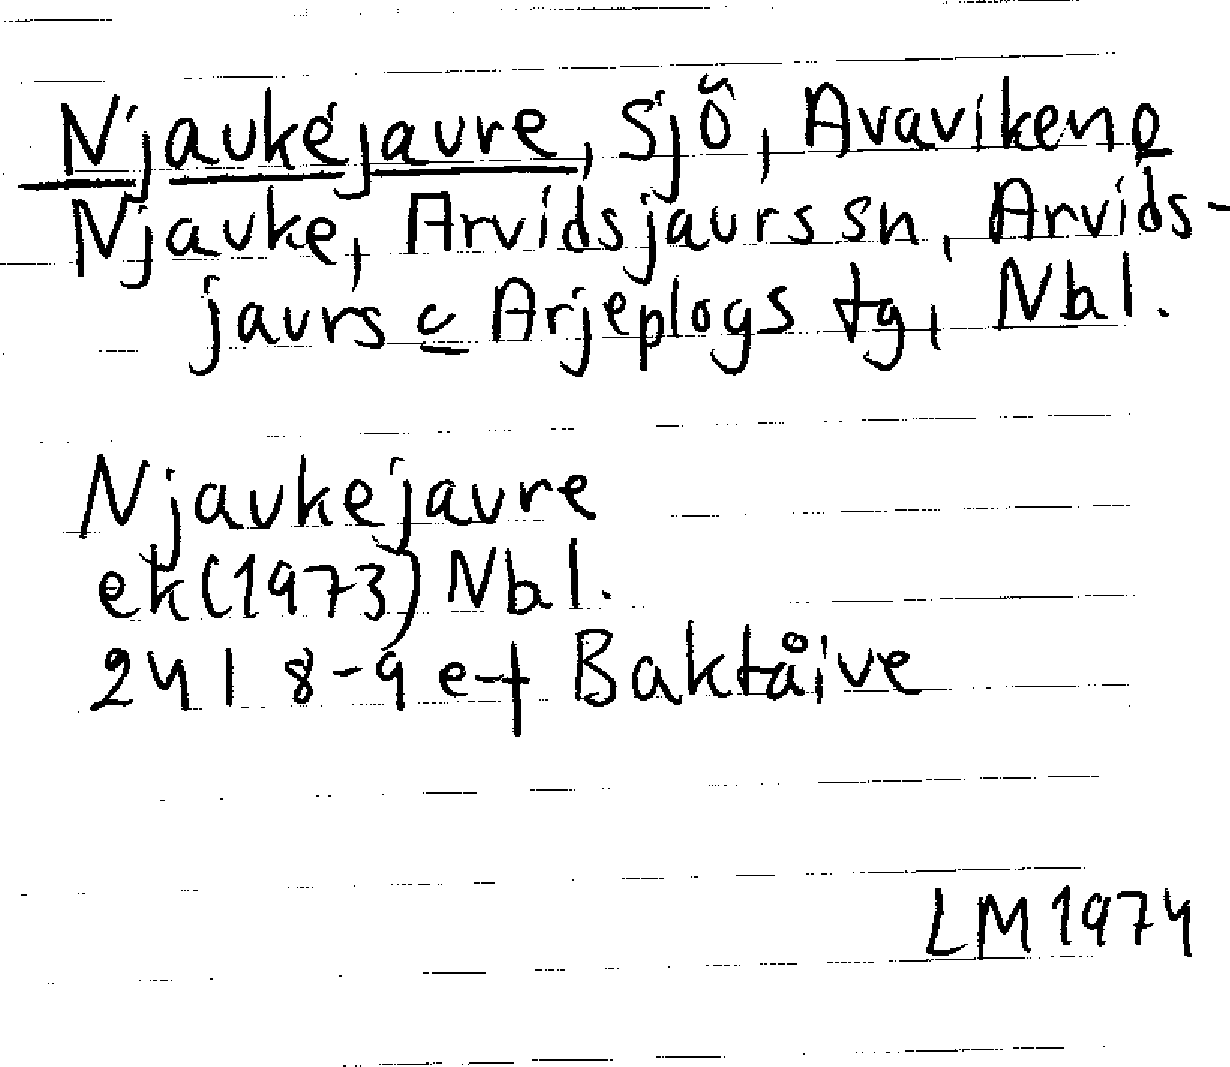 Njaukejaure, sjö, Avaviken o
Njauke, Arvidsjaurs sn, Arvids-
jaurs o Arjeplogs tg, Nbl.
Njaukejaure
ek(1973) Nbl.
241 8-9 e-f Baktåive
LM 1974